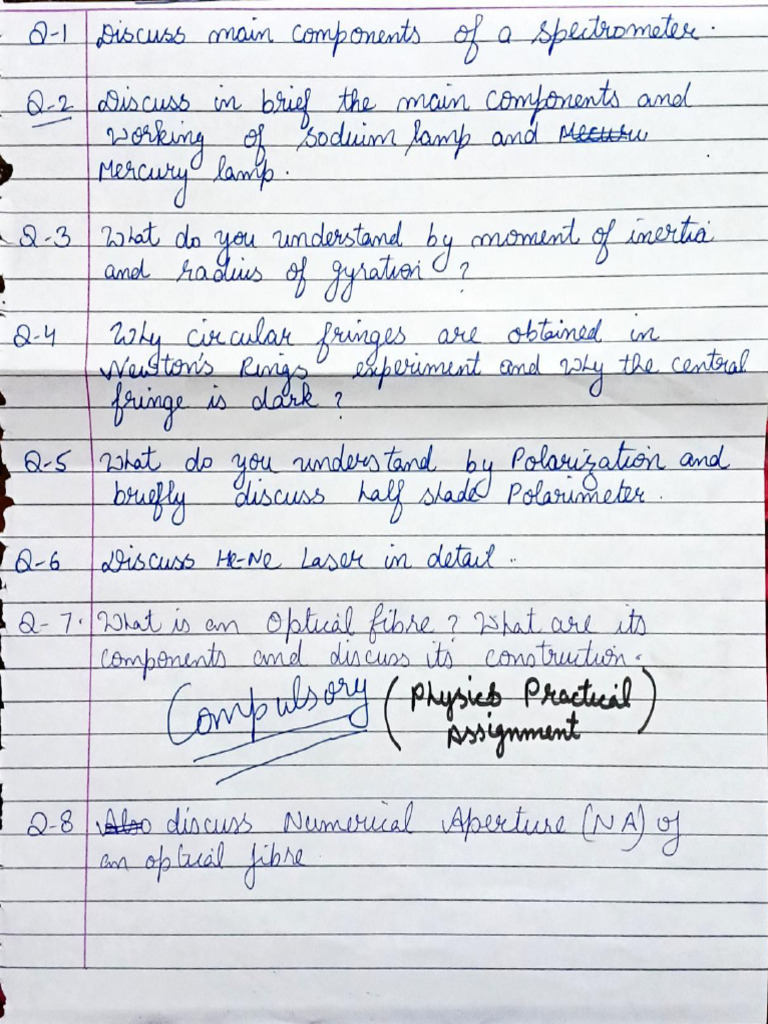 Q-1 Discuss main components of a spectrometer.
Q-2 Discuss in brief the main components and
working of soduim lamp and
Mercury lamp.
Q-3 What do you understand by moment of inertia
and radius of gyration ?
Q-4 Why circular fringes are obtained in
Newton's Rings experiment and why the central
fringe is dark ?
Q-5 What do you understand by Polarization and
briefly discuss half shade Polarimeter.
Q-6 Discuss He-Ne Laser in detail..
Q-7. What is an Optical fibre ? What are its
components and discuss its construction.
Compulsory (Physics Practical
Assignment)
Q-8 Also discuss Numerical Aperture (NA) of
an optical fibre